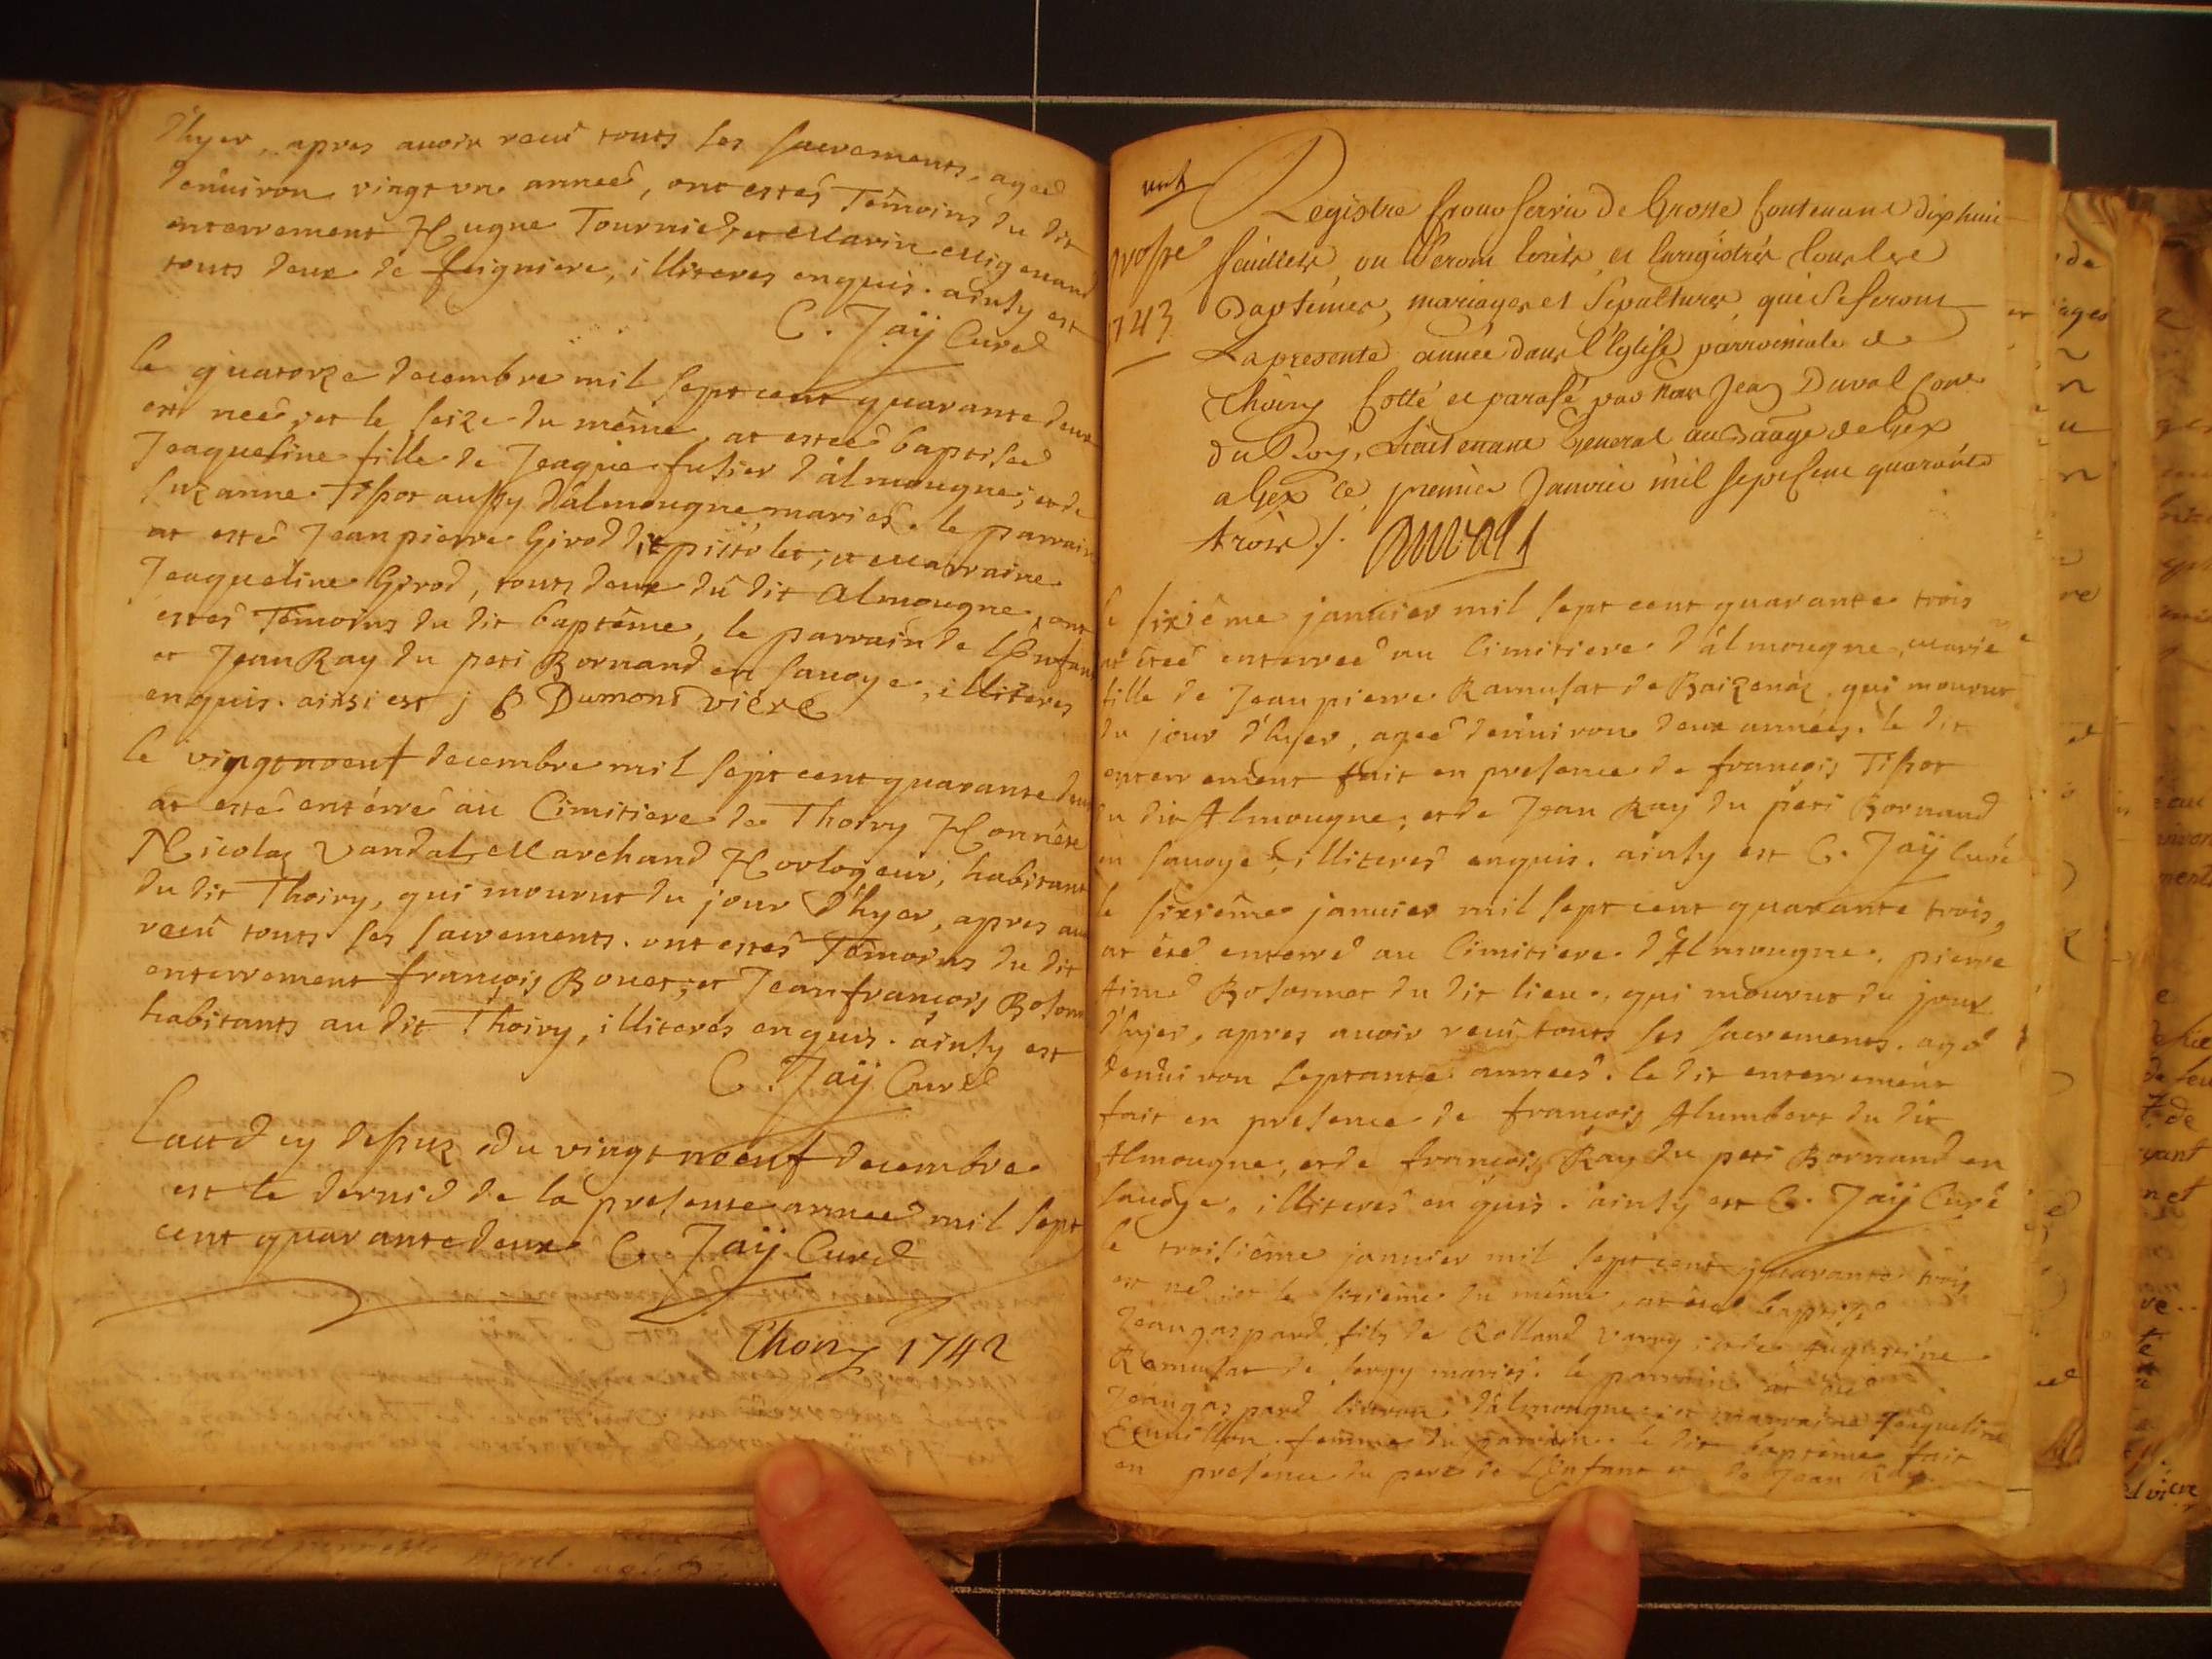 d'hyer, apres avoir receu touts ses sacrements, ageé
d'enuiron vingt vn anneé, ont estés Témoins du dit
enterrement Hugue Tournier, et Marin
touts deux de feigniere, illiteres enquis. ainsy est
C. Jaÿ Curé
le quatorze decembre mil sept cent quarante deux
est neé, et le seize du même, at esteé baptiseé
Jeaqueline fille de Jeaque fusier d'almougne; et de
suzanne Tissot aussy d'almougne mariés. le parrain
at esté Jeanpierre Girod dit pistolet; et marraine
Jeaqueline Girod, touts deux du dit almougne, ont
estés Témoins du dit baptême, le parrain de l'Enfant
et Jean Ray du peti Bornand en sauoye, illiteres
enquis. ainsi est j B Dumont vicre
le vingt noeuf decembre mil sept cent quarante deux
at esté enterré au Cimitiere de Thoiry Honnête
Nicolas Vandal Marchand Horlogeur, habitant
du dit Thoiry, qui mourut du jour d'hyer, apres au
receu touts ses sacrements. ont estés Témoins du dit
enterrement françois Bouet; et Jean françois Boson
habitants au dit Thoiry, illiterés enquis. ainsy est
C. Jaÿ Curé
L'act cy dessus du vingt noeuf decembre
est le dernié de la presente anneé mil sept
cent quarante deux C. Jaÿ Curé
Thoiry 1742
grosse
1743
Registre pour servir de Grosse Contenant dix huit
feuillets ou seront Ecrits et Enregistrés tous les
Baptêmes, mariages et Sepultures, qui se feront
La presente année dans l'Eglise parroissiale de
Thoiry Cotté et parafé par nous Jean Duval
Lieutenant General au Baage de Gex
a Gex ce premier Janvier mil sept Cent quarante
trois /. Duval
le sixiême januier mil sept cent quarante trois
at éteé enterreé au Cimitiere d'almougne, marie
fille de Jeanpierre Ramusat de Baizenaz, qui mourut
du jour d'hyer, ageé d'enuiron deux anneés. le dit
enterrement fait en presence de françois Tissot
du dit Almougne; et de Jean Ray du peti Bornand
en sauoye, illiteres enquis. ainsy est C. Jaÿ Curé
le sixiême januier mil sept cent quarante trois,
at été enterré au Cimitiere d'Almougne, pierre
Aimé Bosonnet du dit lieu, qui mourut du jour
d'hyer, apres auoir receu touts ses sacrements. agé
d'enuiron septante anneés. le dit enterrement
fait en presence de françois Alumbert du dit
Almougne, et de françois Ray du peti Bornand en
sauoye, illiteres enquis. ainsy est C. Jaÿ Curé
le troisiême januier mil sept cent quarante trois
est né, et le sixiême du même, at été baptisé
Jeangaspard fils de Rolland Varry; et de
Ramusat de sergy mariés. le parrain at été
Jeangaspard d'almougne; et marraine Jeaqueline
femme du parrain. le dit baptême fait
en presence du pere de l'Enfant et de Jean Ray